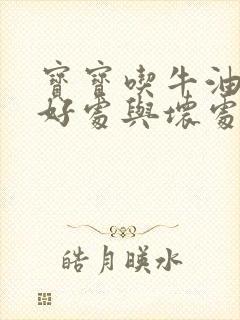 寶寶喫牛油
好處與壞處
皓月暎水